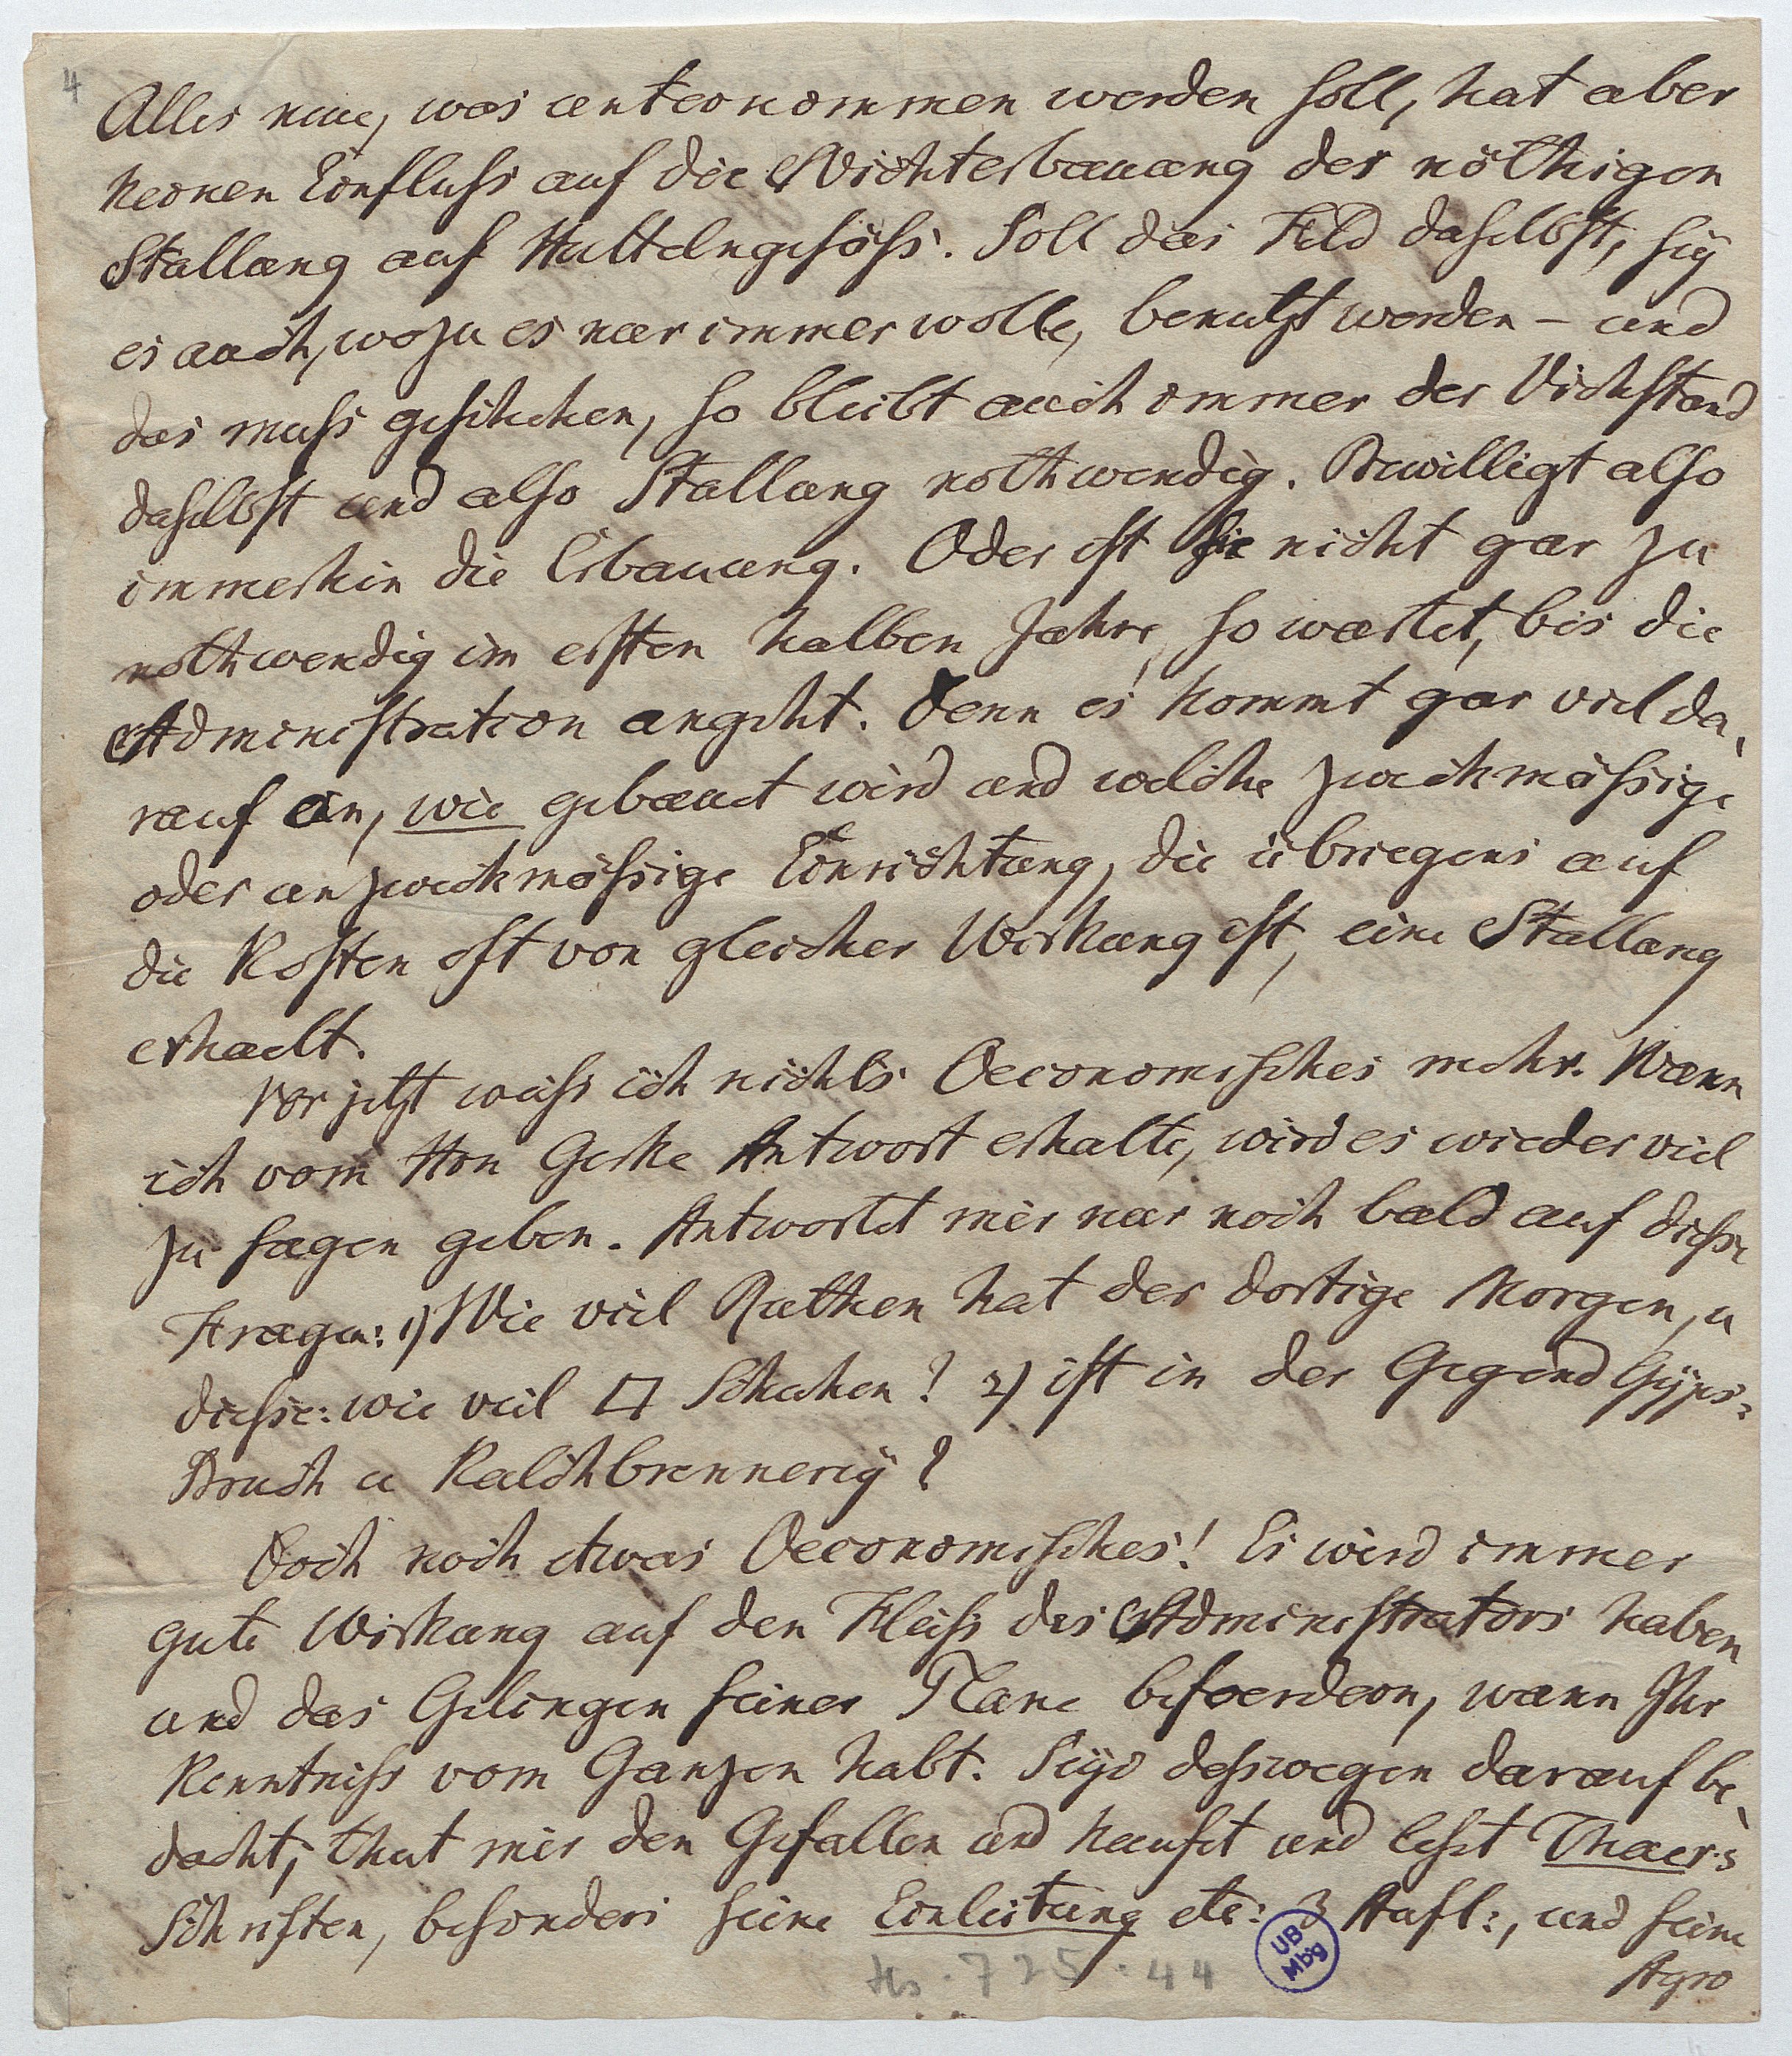 4
Alles neue, was unternommen werden soll, hat aber
keinen Einfluss auf die Nichterbauung der nöthigen
Stallung auf Huttelngesäss. Soll das Feld daselbst, seÿ
es auch, wozu es nur immer wolle, benutzt werden – und
das muss geschehen, so bleibt auch immer der Viehstand
daselbst und also Stallung nothwendig. Bewilligt also
immerhin die Erbauung. Oder ist sie nicht gar zu
nothwendig im ersten halben Jahre, so wartet, bis die
Administration angeht. Denn es kommt gar viel da-
rauf an, wie gebauet wird und welche zweckmässige
oder unzweckmässige Einrichtung, die übriegens auf
die Kosten oft von gleicher Wirkung ist, eine Stallung
erhaelt.
Vor jetzt weiss ich nichts Oeconomisches mehr. Wann
ich vom Hrn Gerke Antwort erhalte, wird es wieder viel
zu sagen geben. Antwortet mir nur noch bald auf diesse
Fragen: 1) Wie viel Ruthen hat der dortige Morgen, u
diesse: wie viel □ Schuhen? 2) ist in der Gegend Gÿps-
Bruch u Kalchbrennereÿ?
Doch noch etwas Oeconomisches! Es wird immer
gute Wirkung auf den Fleiss des Administrators haben
und das Gelingen seiner Plane befoerdern, wann Ihr
Kenntniss vom Ganzen habt. Seÿd desswegen darauf be-
dacht, thut mir den Gefallen und kaufet und leset Thaers
Schriften, besonders seine Einleitung etc: 3 Aufl:, und seine
Agro
Hs. 725:44
UB
Mbg